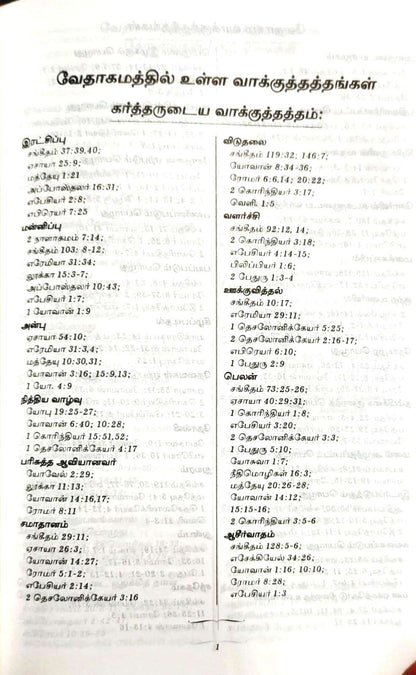 வேதாகமத்தில் உள்ள வாக்குத்தத்தங்கள்
கர்த்தருடைய வாக்குத்தத்தம்:
இரட்சிப்பு
சங்கீதம் 37:39,40;
ஏசாயா 25:9;
மத்தேயு 1:21
அப்போஸ்தலர் 16:31;
எபேசியர் 2:8;
எபிரெயர் 7:25
மன்னிப்பு
2 நாளாகமம் 7:14;
சங்கீதம் 103: 8-12;
எரேமியா 31:34;
லூக்கா 15:3-7;
அப்போஸ்தலர் 10:43;
எபேசியர் 1:7;
1 யோவான் 1:9
அன்பு
ஏசாயா 54:10;
எரேமியா 31:3,4;
மத்தேயு 10:30,31;
யோவான் 3:16; 15:9,13;
1 யோ. 4:9
நித்திய வாழ்வு
யோபு 19:25-27;
யோவான் 6:40; 10:28;
1 கொரிந்தியர் 15:51,52;
1 தெசலோனிக்கேயர் 4:17
பரிசுத்த ஆவியானவர்
யோவேல் 2:29;
லூக்கா 11:13;
யோவான் 14:16,17;
ரோமர் 8:11
சமாதானம்
சங்கீதம் 29:11;
ஏசாயா 26:3;
யோவான் 14:27;
ரோமர் 5:1-2;
எபேசியர் 2:14;
2 தெசலோனிக்கேயர் 3:16
விடுதலை
சங்கீதம் 119:32; 146:7;
யோவான் 8:34-36;
ரோமர் 6:6,14; 20:22;
2 கொரிந்தியர் 3:17;
வெளி. 1:5
வளர்ச்சி
சங்கீதம் 92:12, 14;
2 கொரிந்தியர் 3:18;
எபேசியர் 4:14-15;
பிலிப்பியர் 1:6;
2 பேதுரு 1:3-4
ஊக்குவித்தல்
சங்கீதம் 10:17;
எரேமியா 29:11;
1 தெசலோனிக்கேயர் 5:25;
2 தெசலோனிக்கேயர் 2:16-17;
எபிரெயர் 6:10;
1 பேதுரு 2:9
பெலன்
சங்கீதம் 73:25-26;
ஏசாயா 40:29-31;
1 கொரிந்தியர் 1:8;
எபேசியர் 3:20;
2 தெசலோனிக்கேயர் 3:3;
1 பேதுரு 5:10;
யோசுவா 1:7;
நீதிமொழிகள் 16:3;
மத்தேயு 20:26-28;
யோவான் 14:12;
15:15-16;
2 கொரிந்தியர் 3:5-6
ஆசீர்வாதம்
சங்கீதம் 128:5-6;
எசேக்கியேல் 34:26;
யோவான் 1:16; 10:10;
ரோமர் 8:28;
எபேசியர் 1:3
1